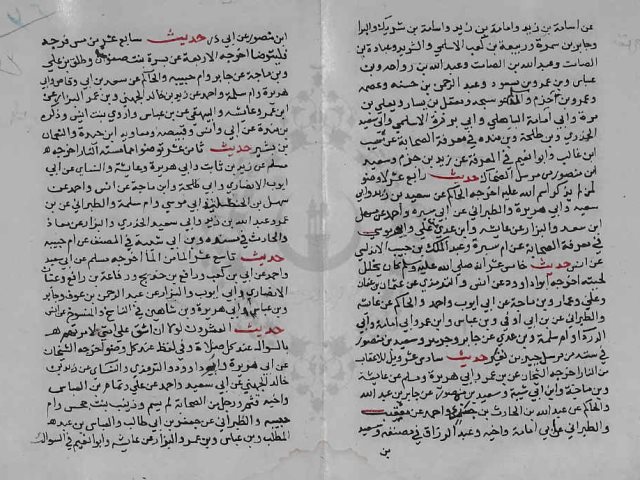 عن اسامة بن زيد وامامة بن زيد واسامة بن شريك والبراء
وجابر بن سمرة وربيعة بن كعب الاسلمي والشريد وعبادة بن
الصامت وعبد الله بن الصامت وعبد الله بن رواحه وبن
عباس وبن عمر وبن مسعود وعبد الرحمن بن حسنه وعصمه
وعمرو بن اخزم ومعقل بن يسار ويعلى بن
مرة وابي امامة الباهلي وابي برزة الاسلمي وابي سعيد
الخدري بن طلحة وبن منده في معرفة الصحابة عن شبيب
ابن غالب وابو نعيم في المعرفة عن زيد بن حزم وسعيد
ابن منصور من مرسل الضحاك حديث رابع عشر لا وضو
لمن لم يذكر اسم الله عليه اخرجه الحاكم عن سعيد بن زيد وابي
سعيد وابي هريرة والطبراني عن ابي سبره واحمد عن سهل
ابن سعد والبزار عن عايشة وابن عدي عن علي وابو موسى
في معرفة الصحابة عن ام سبرة وعبد الملك بن حبيب الاندلسي
عن انس حديث خامس عشر انه صلى الله عليه وسلم كان يخلل
لحيته اخرجه ابو داود عن انس والترمذي عن عثمان وعن عمار
وعلي وعمار وبن ماجة عن ابي ايوب واحمد والحاكم عن عايشة
والطبراني عن بن ابي اوفى وبن عباس وابن عمر وابي امامة وابي
الدرداء وام سلمة وبن عدي عن جابر وجرير وسعيد بن منصور
في سننه من مرسل جبير بن نفير حديث سادس عشر ويل للاعقاب
من النار اخرجه الشيخان عن بن عمر وابي هريرة ومسلم عن عايشة
وبن ماجة وابن ابي شيبة وسعيد بن منصور عن جابر بن عبد الله
والحاكم عن عبد الله بن الحارث بن جزء واحمد عن معيقيب
والطبراني عن ابي امامة واخيه وعبد الرزاق في مصنفه وسعيد
بن
ابن منصور عن ابي ذر حديث سابع عشر من مس فرجه
فليتوضا اخرجه الاربعة عن بسرة بنت صفوان وطلق بن علي
وبن ماجة عن جابر وام حبيبه والحاكم عن سعد بن ابي وقاص وابي
هريرة وام سلمة واحمد عن زيد بن خالد الجهني وبن عمر البزار عن
ابن عمر وعايشه والبيهقي عن بن عباس واروى بنت انيس وذكره
بن مندة عن ابي وانس وقبيصه ومعاويه ابن حيدة والنعمان
بن بشير حديث ثامن عشر توضئوا مما مست النار اخرجه
مسلم عن زيد بن ثابت وابي هريرة وعايشة والنساي عن ابي
ايوب الانصاري وابي طلحه وبن ماجة عن انس واحمد عن
سهل بن الحنظلية وابي موسى وام سلمة والطبراني عن بن
عمر وعبد الله بن زيد وابي سعيد الخدري والبزار عن معاذ
والحارث في مسنده وبن ابي شيبة في المصنف عن ام حبيبه
حديث تاسع عشر الماء من الماء اخرجه مسلم عن ابي سعيد
واحمد عن ابي بن كعب ورافع بن خديج ورفاعة بن رافع وعتبان
الانصاري وابي ايوب والبزار عن عبد الرحمن بن عوف وجابر
وبن عباس وابي هريرة وبن شاهين في الناسخ والمنسوخ عن انس
حديث العشرون لولا ان اشق على امتي لامرتهم
بالسواك عند كل صلاة وفي لفظ عند كل وضو اخرجه الشيخان
عن ابي هريرة وابو داود والترمذي والنساي عن زيد بن
خالد الجهني عن ابي سعيد واحمد عن علي وتمام بن العباس
واخيه قثم ورجل من الصحابة لم يسم وزينب بنت جحش وام
حبيبه والطبراني عن جعفر بن ابي طالب والعباس بن عبد
المطلب وبن عباس وبن عمر والبزار عن عايشة وابو نعيم في السواك